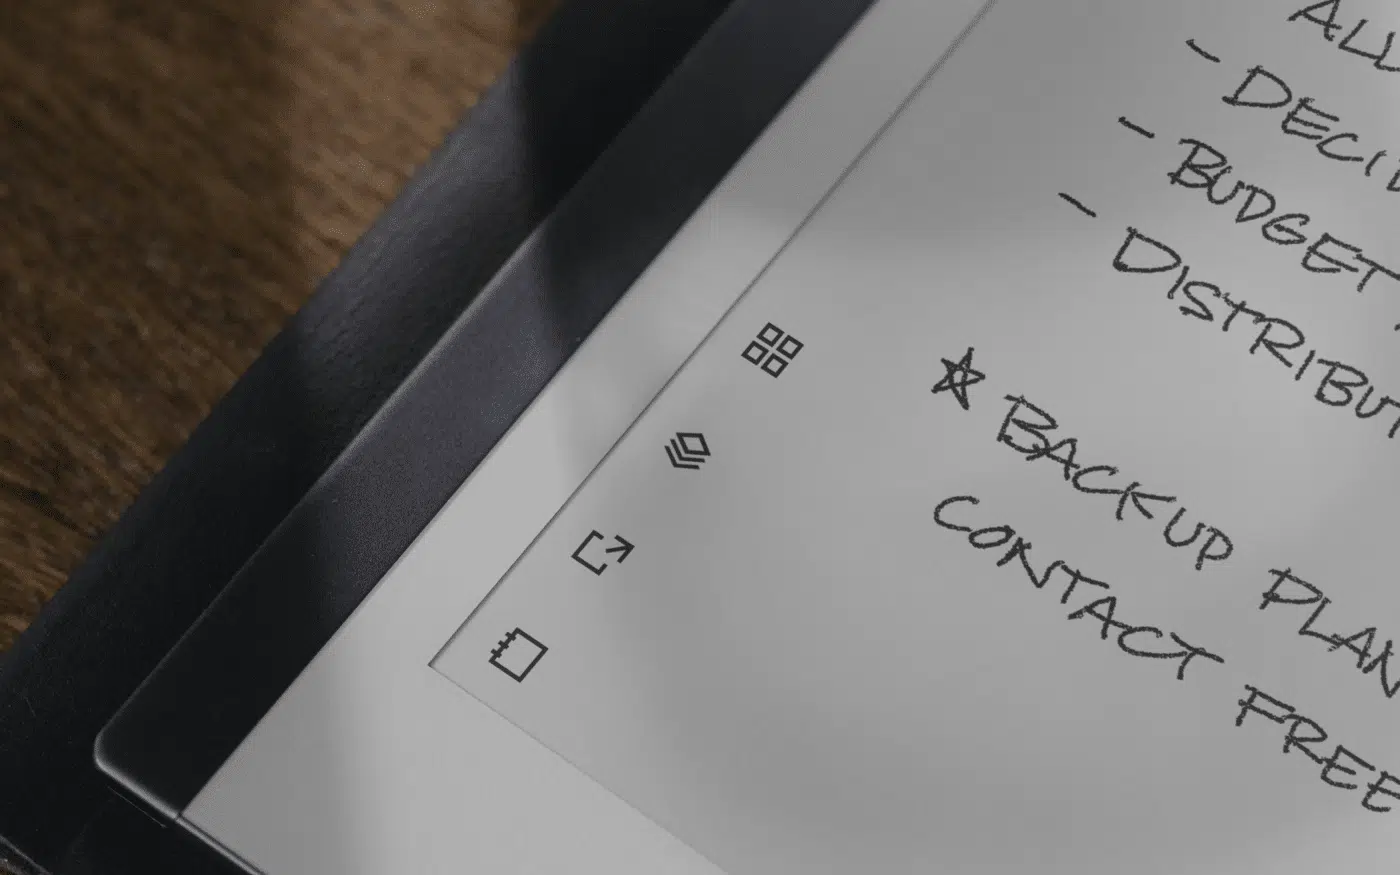 ALL
- DECI
- BUDGET
- DISTRIBU
☆ BACKUP PLAN
CONTACT FREE